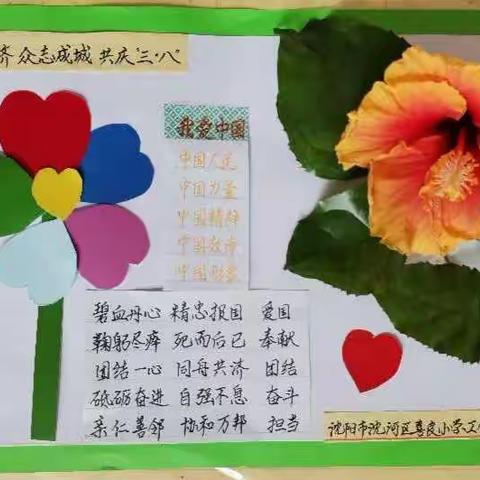 济 众志成城 共庆"三·八"
我爱中国
中国人民
中国力量
中国精神
中国效率
中国形象
碧血丹心 精忠报国 爱国
鞠躬尽瘁 死而后已 奉献
团结一心 同舟共济 团结
砥砺奋进 自强不息 奋斗
亲仁善邻 协和万邦 担当
沈阳市沈河区喜良小学